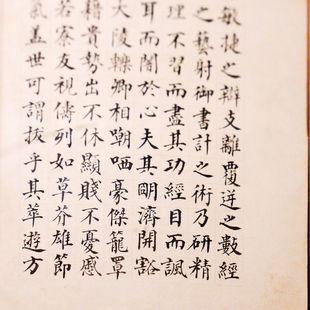 敏捷之辯支離覆逆之數經
之藝射御書計之術乃研精
理不習而盡其功經目而諷
耳而闇於心夫其明濟開豁
大陵轢卿相嘲哂豪傑籠罩
籍貴勢出不休顯賤不憂慼
若寮友視儔列如草芥雄節
氣蓋世可謂拔乎其萃遊方